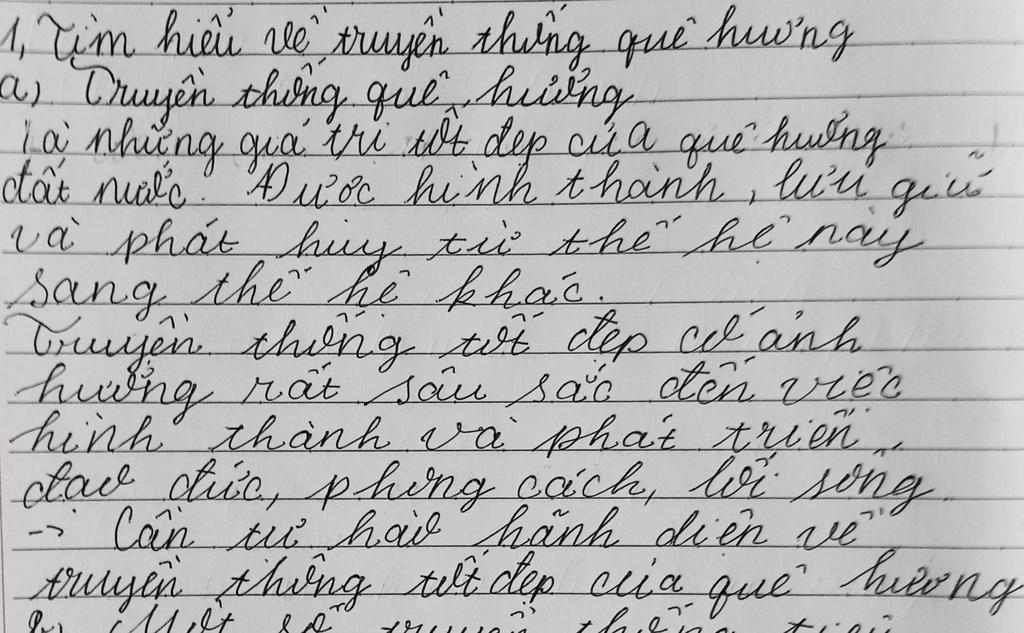 1, Tìm hiểu về truyền thống quê hương
a) Truyền thống quê hương
là những giá trị tốt đẹp của quê hương
đất nước. Được hình thành, lưu giữ
và phát huy từ thế hệ này
sang thế hệ khác.
Truyền thống tốt đẹp có ảnh
hưởng rất sâu sắc đến việc
hình thành và phát triển
đạo đức, phong cách, lối sống
-> Cần tự hào hãnh diện về
truyền thống tốt đẹp của quê hương
b) Một số truyền thống tiêu